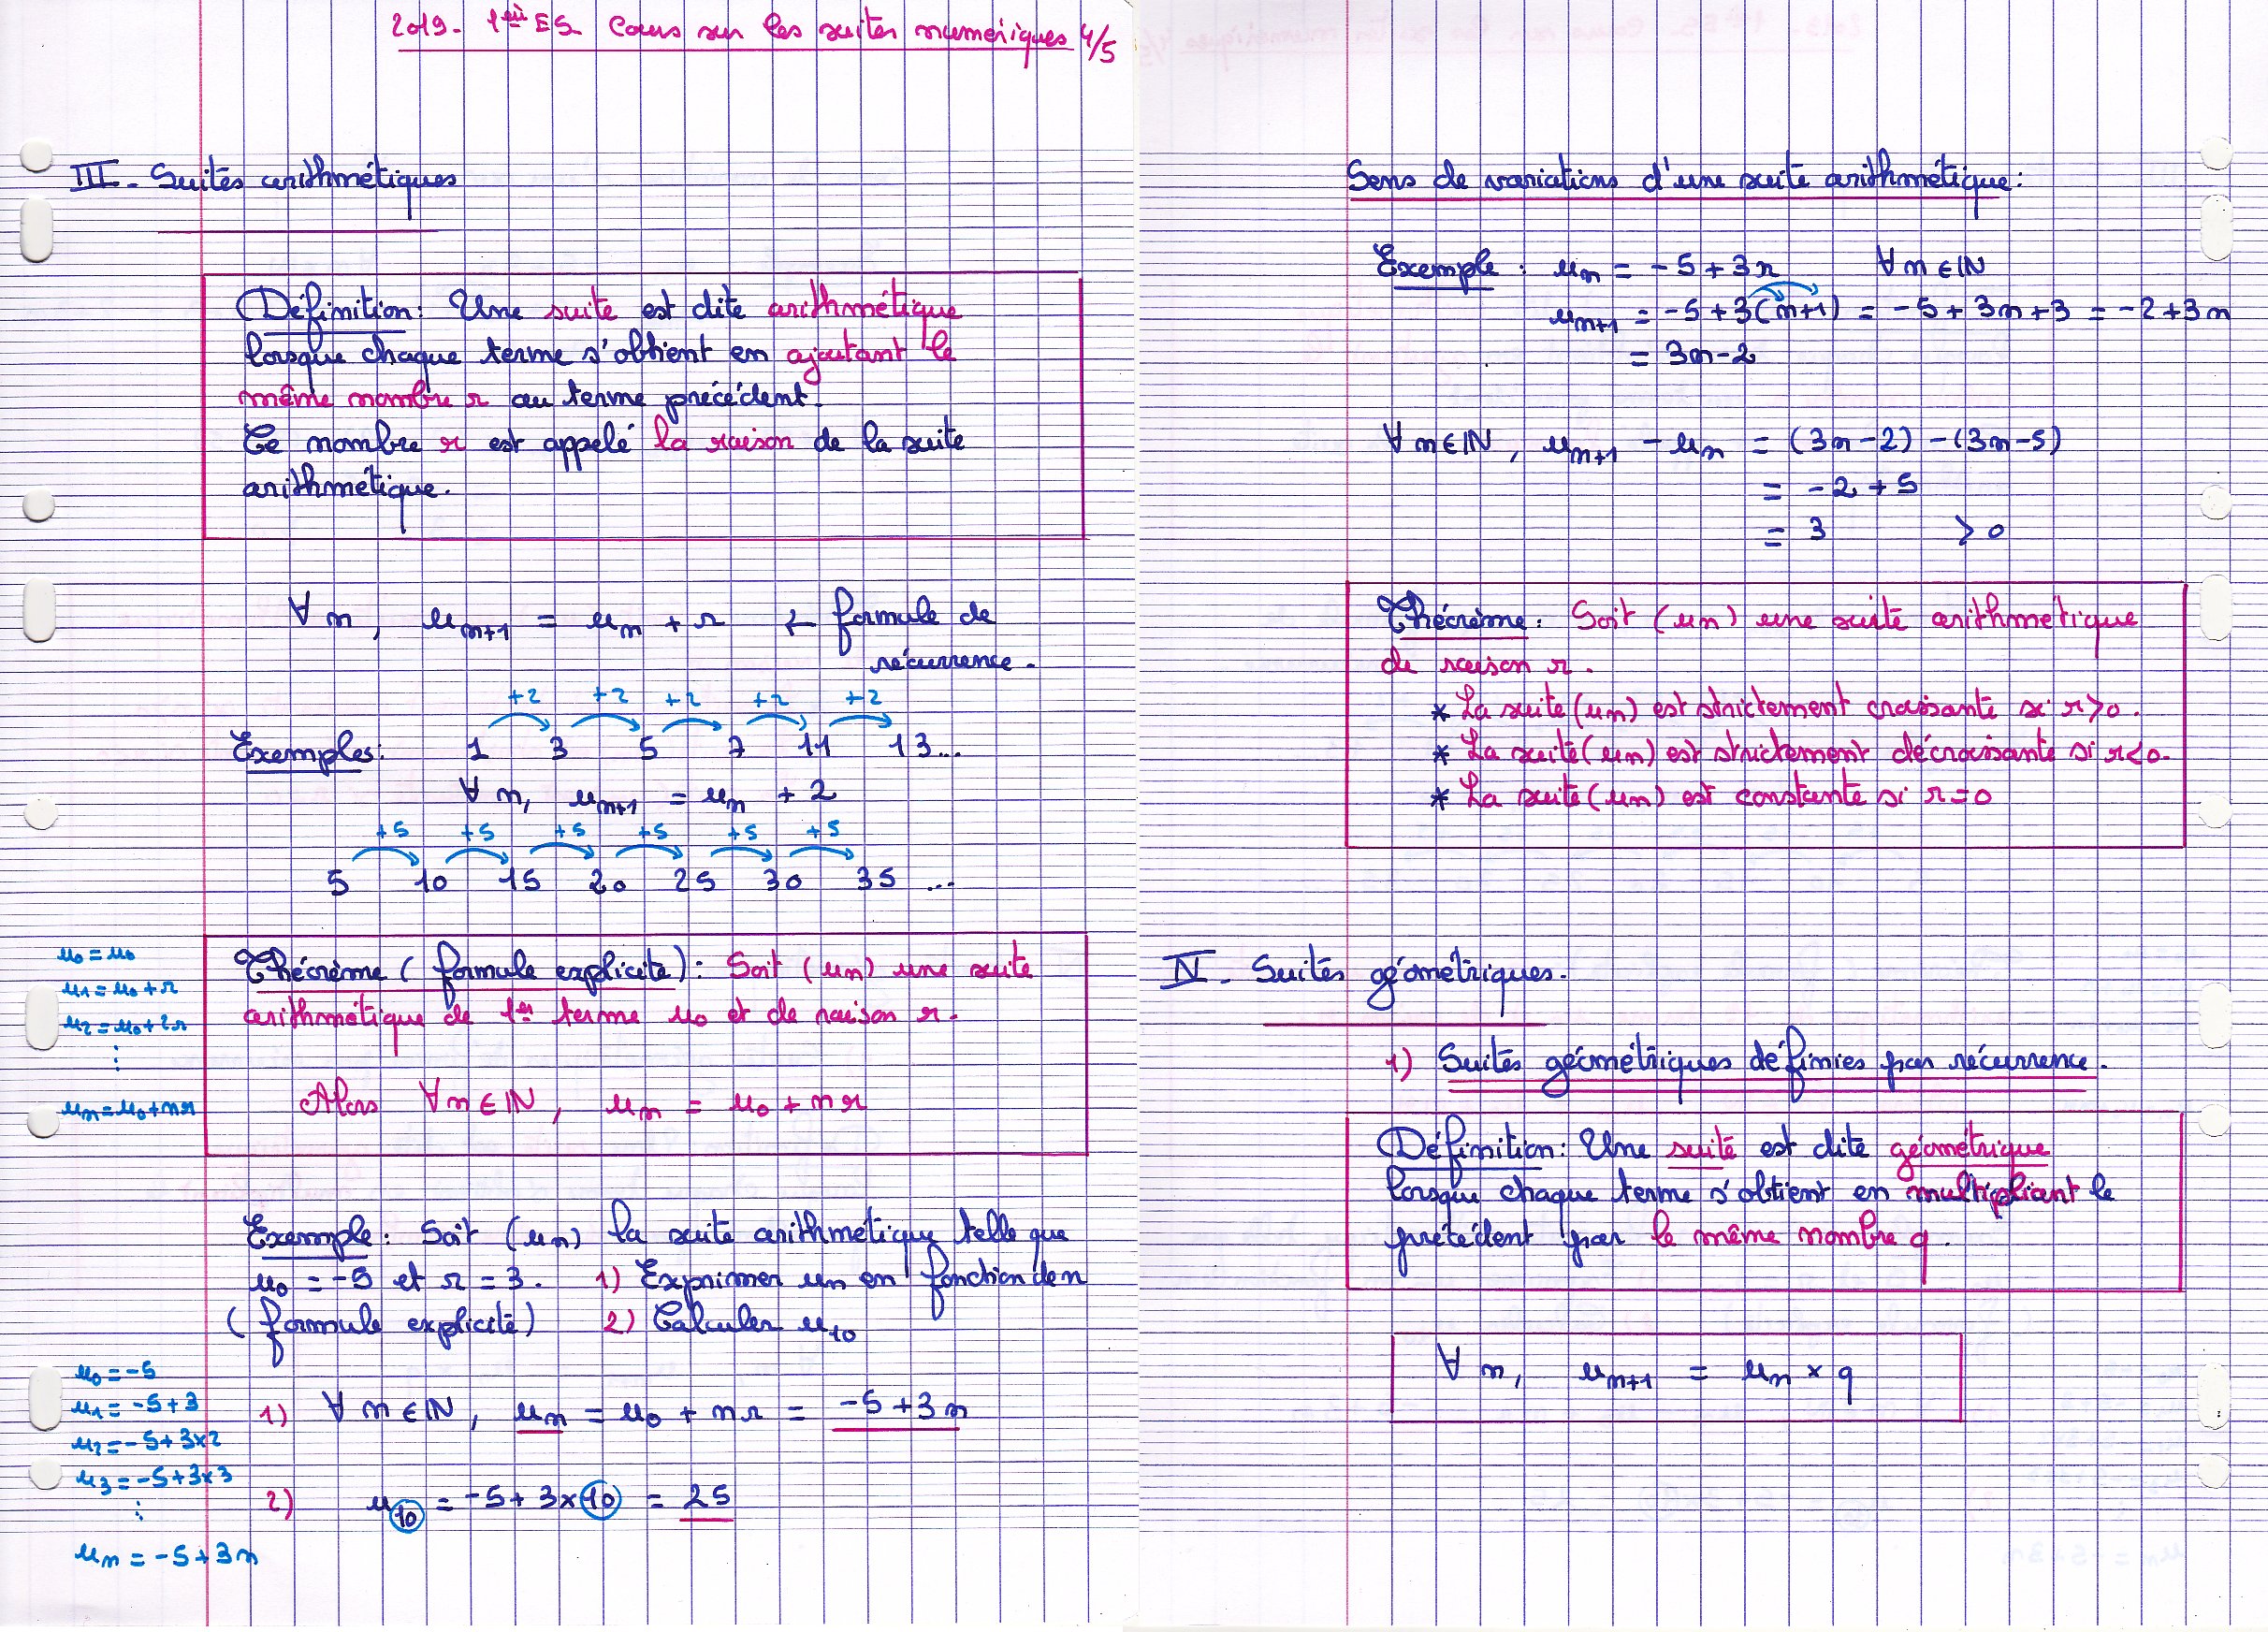 2019- 1ère ES Cours sur les suites numériques 4/5
III - Suites arithmétiques
Définition: Une suite est dite arithmétique
lorsque chaque terme s'obtient en ajoutant le
même nombre r au terme précédent.
Ce nombre r est appelé la raison de la suite
arithmétique.
∀ n, uₙ₊₁ = uₙ + r ← formule de
récurrence.
+2 +2 +2 +2 +2
Exemples: 1 3 5 7 11 13...
∀ n, uₙ₊₁ = uₙ + 2
+5 +5 +5 +5 +5 +5
5 10 15 20 25 30 35 ...
u₀ = u₀
u₁ = u₀ + r
u₂ = u₀ + 2r
⋮
uₙ = u₀ + nr
Théorème (formule explicite): Soit (un) une suite
arithmétique de 1er terme u₀ et de raison r.
Alors ∀n ∈ ℕ, uₙ = u₀ + nr
Exemple: Soit (un) la suite arithmétique telle que
u₀ = -5 et r = 3. 1) Exprimer un en fonction de n
(formule explicite) 2) Calculer u₁₀
u₀ = -5
u₁ = -5+3
u₂ = -5+3×2
u₃ = -5+3×3
⋮
uₙ = -5+3n
1) ∀ n ∈ ℕ, uₙ = u₀ + nr = -5+3n
2) u₁₀ = -5+3×10 = 25
Sens de variations d'une suite arithmétique:
Exemple: uₙ = -5+3n ∀ n ∈ ℕ
uₙ₊₁ = -5+3(n+1) = -5+3n+3 = -2+3n
= 3n-2
∀ n ∈ ℕ, uₙ₊₁ - uₙ = (3n-2) -(3n-5)
= -2+5
= 3 > 0
Théorème: Soit (un) une suite arithmétique
de raison r.
* La suite (un) est strictement croissante si r>0.
* La suite (un) est strictement décroissante si r<0.
* La suite (un) est constante si r=0
IV. Suites géométriques.
1) Suites géométriques définies par récurrence.
Définition: Une suite est dite géométrique
lorsque chaque terme s'obtient en multipliant le
précédent par le même nombre q.
∀ n, uₙ₊₁ = uₙ × q